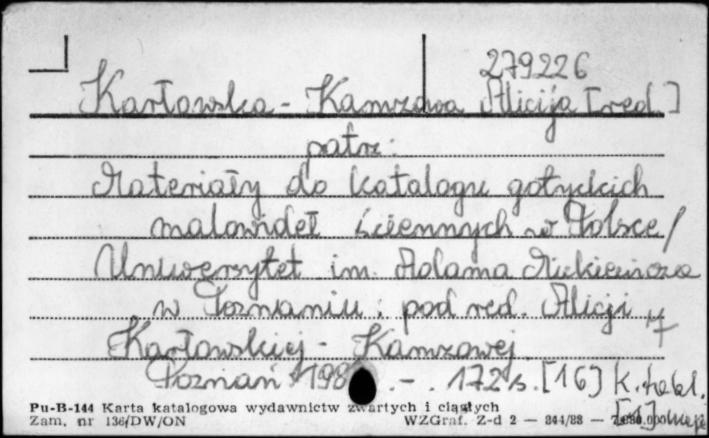 279226
Karłowska-Kamzowa Alicja [red.]
patrz:
Materiały do katalogu gotyckich
malowideł ściennych w Polsce /
Uniwersytet im. Adama Mickiewicza
w Poznaniu ; pod red. Alicji
Karłowskiej-Kamzowej.
Poznań 198 . - . 172 s. [16] k. tabl.
Pu-B-144 Karta katalogowa wydawnictw zwartych i ciągłych
Zam. nr 136/DW/ON WZGraf. Z-d 2 — 844/88 —